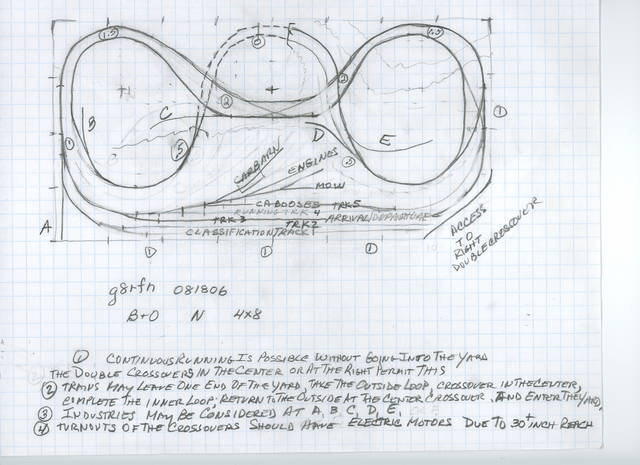 1.5
0
1.5
2
2
C
B
D
E
1
1
.5
.5
CARBARN
ENGINES
MOW
CABOOSES TRK 5
RUNNING TRK 4
ARRIVAL/DEPARTURE
TRK 3
TRK 2
CLASSIFICATION TRACK 1
A
1
1
1
ACCESS
TO
RIGHT
DOUBLE CROSSOVER
g8rfn 081806
B+O N 4x8
1 CONTINUOUS RUNNING IS POSSIBLE WITHOUT GOING INTO THE YARD
THE DOUBLE CROSSOVERS IN THE CENTER OR AT THE RIGHT PERMIT THIS
2 TRAINS MAY LEAVE ONE END OF THE YARD, TAKE THE OUTSIDE LOOP, CROSSOVER IN THE CENTER,
COMPLETE THE INNER LOOP, RETURN TO THE OUTSIDE AT THE CENTER CROSSOVER, AND ENTER THE YARD,
3 INDUSTRIES MAY BE CONSIDERED AT A, B, C, D, E,
4 TURNOUTS OF THE CROSSOVERS SHOULD HAVE ELECTRIC MOTORS DUE TO 30+ INCH REACH